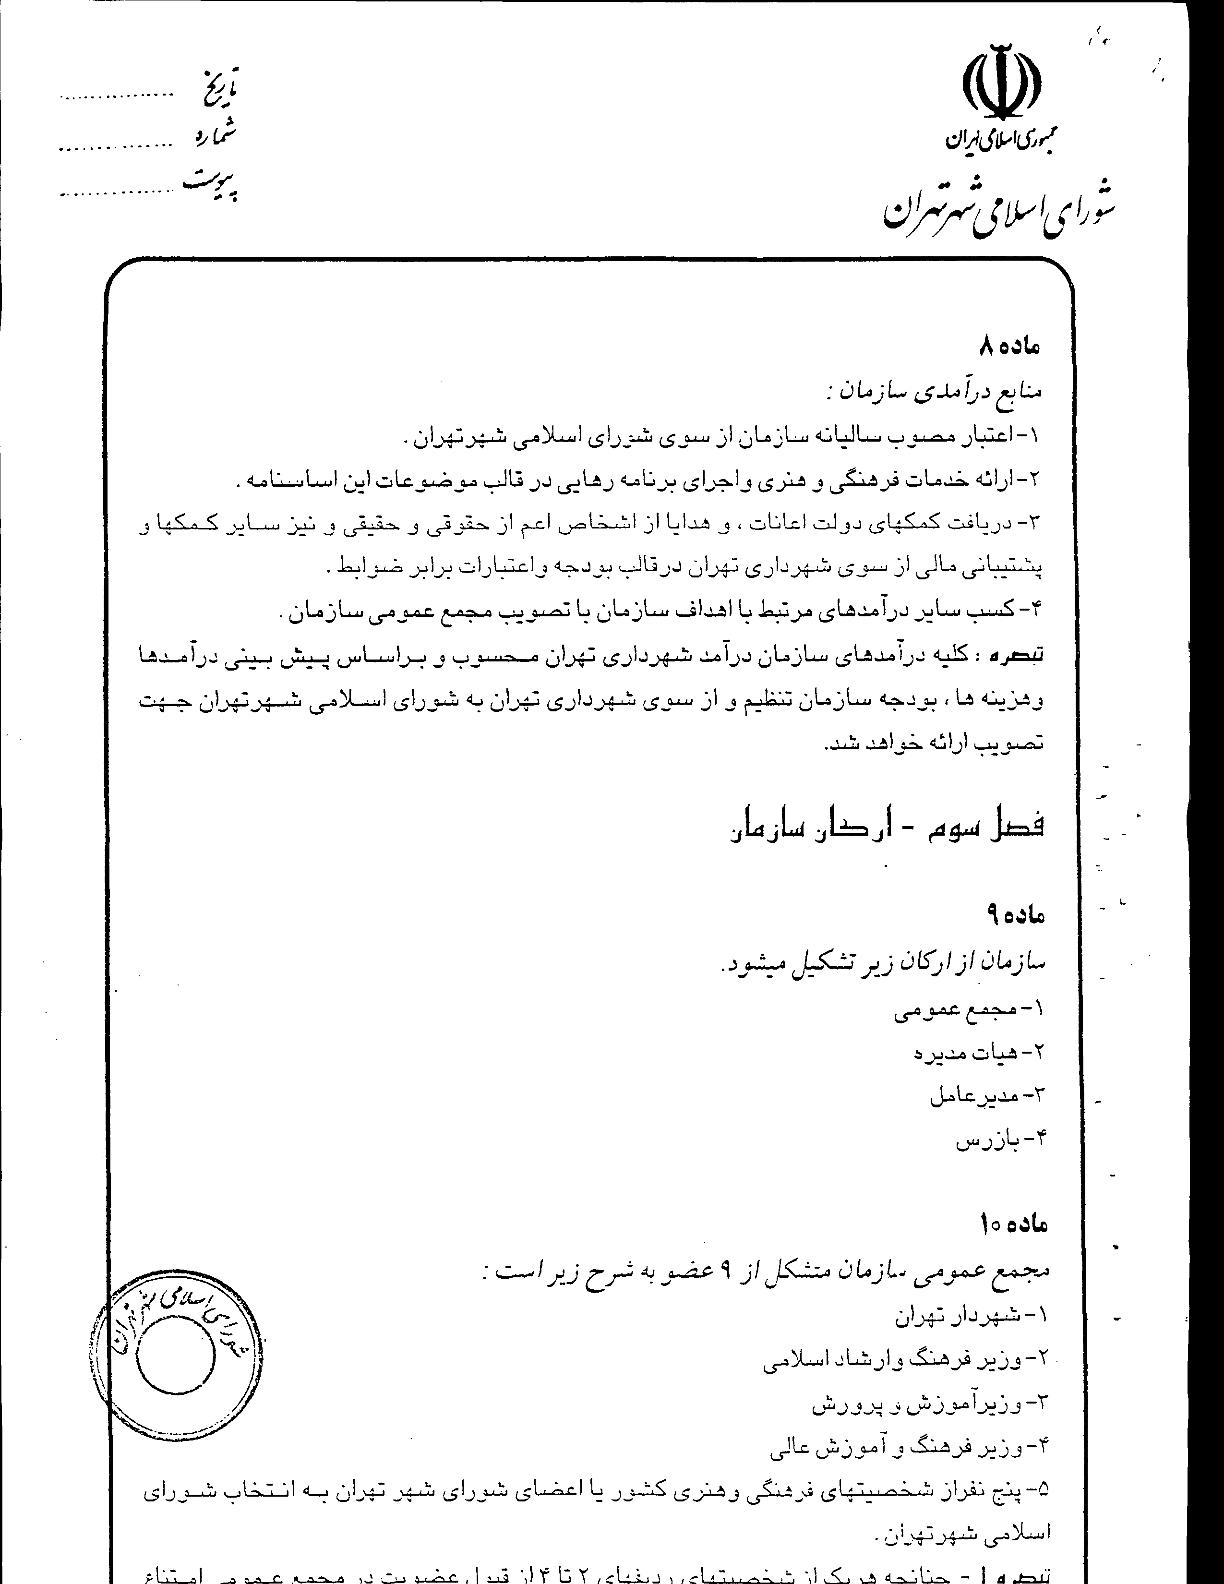 جمهوری اسلامی ایران
شورای اسلامی شهر تهران
تاریخ ................
شماره ................
پیوست ................
ماده ۸
منابع درآمدی سازمان :
۱- اعتبار مصوب سالیانه سازمان از سوی شورای اسلامی شهر تهران .
۲- ارائه خدمات فرهنگی و هنری و اجرای برنامه رهایی در قالب موضوعات این اساسنامه .
۳- دریافت کمکهای دولت اعانات ، و هدایا از اشخاص اعم از حقوقی و حقیقی و نیز سایر کمکها و
پشتیبانی مالی از سوی شهرداری تهران در قالب بودجه و اعتبارات برابر ضوابط .
۴- کسب سایر درآمدهای مرتبط با اهداف سازمان با تصویب مجمع عمومی سازمان .
تبصره : کلیه درآمدهای سازمان درآمد شهرداری تهران محسوب و براساس پیش بینی درآمدها
وهزینه ها ، بودجه سازمان تنظیم و از سوی شهرداری تهران به شورای اسلامی شهر تهران جهت
تصویب ارائه خواهد شد.
فصل سوم - ارکان سازمان
ماده ۹
سازمان از ارکان زیر تشکیل میشود.
۱- مجمع عمومی
۲- هیات مدیره
۳- مدیر عامل
۴- بازرس
ماده ۱۰
مجمع عمومی سازمان متشکل از ۹ عضو به شرح زیر است :
۱- شهردار تهران
۲- وزیر فرهنگ و ارشاد اسلامی
۳- وزیر آموزش و پرورش
۴- وزیر فرهنگ و آموزش عالی
۵- پنج نفر از شخصیتهای فرهنگی و هنری کشور یا اعضای شورای شهر تهران به انتخاب شورای
اسلامی شهر تهران .
تبصره ۱ - چنانچه هر یک از شخصیتهای ردیفهای ۲ تا ۴ از قبول عضویت در مجمع عمومی امتناع
شورای اسلامی شهر تهران